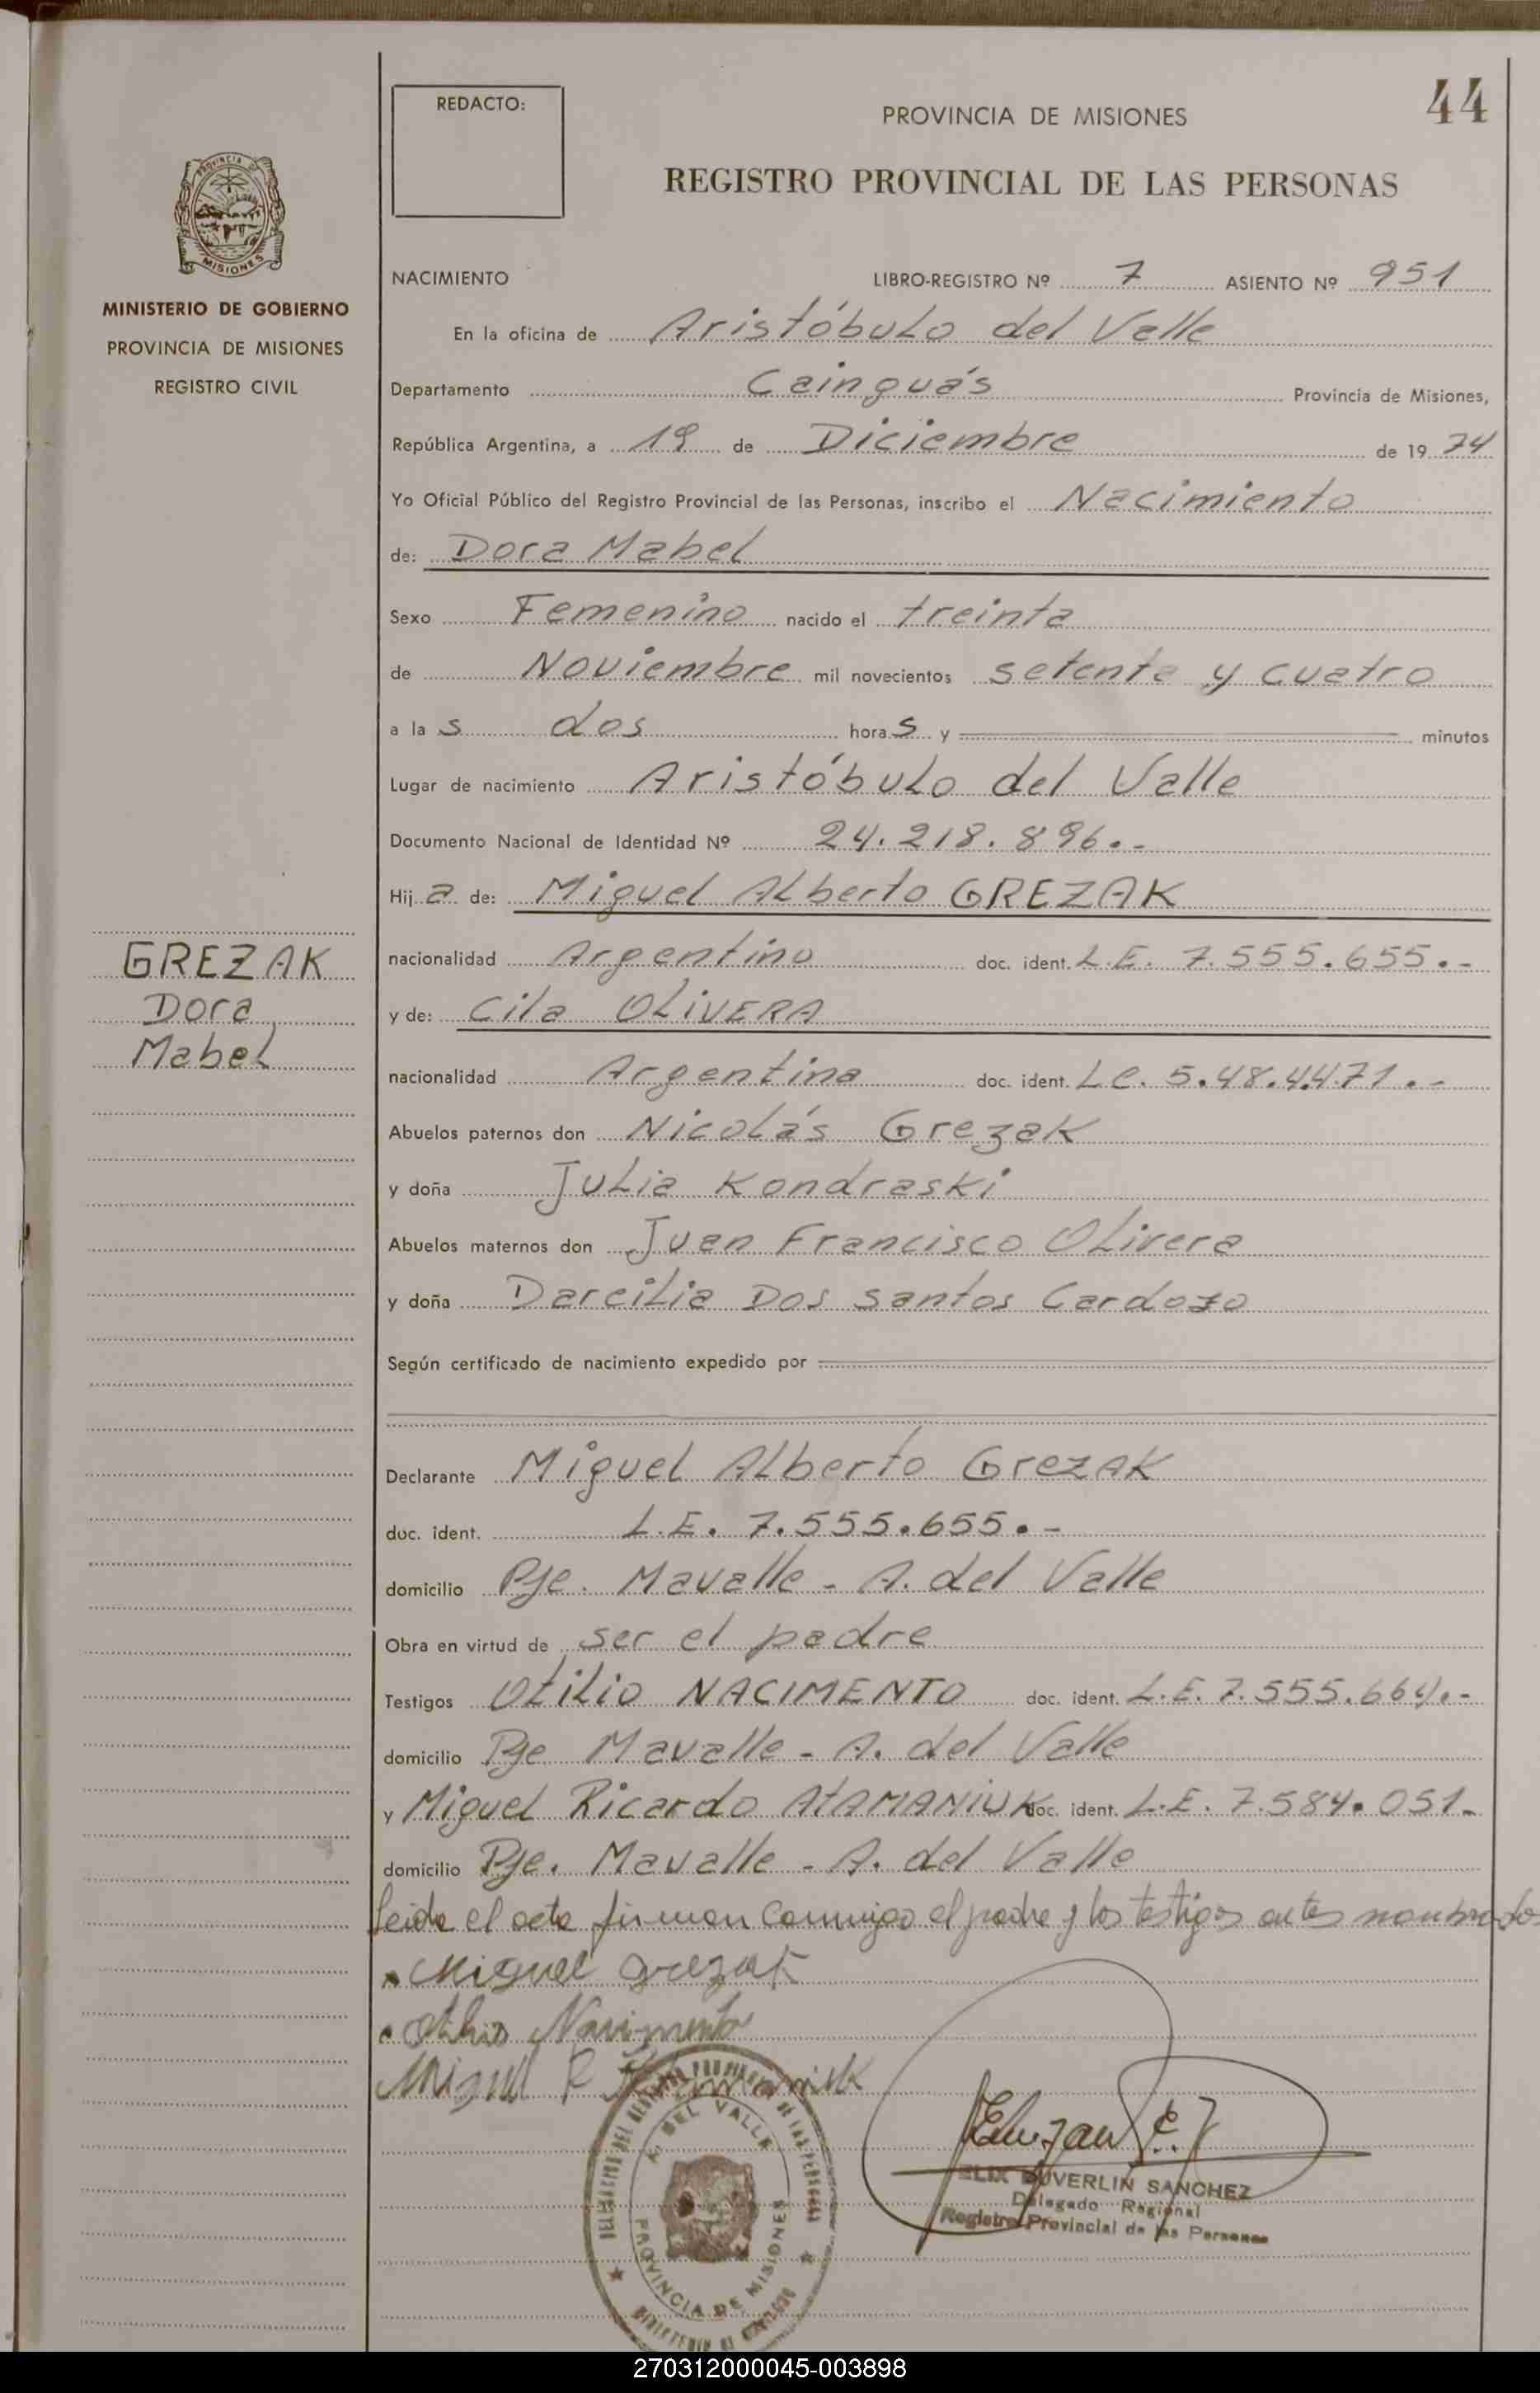 44
REDACTO:
PROVINCIA DE MISIONES
REGISTRO PROVINCIAL DE LAS PERSONAS
PROVINCIA DE
MISIONES
MINISTERIO DE GOBIERNO
PROVINCIA DE MISIONES
REGISTRO CIVIL
NACIMIENTO LIBRO-REGISTRO Nº 7 ASIENTO Nº 951
En la oficina de Aristóbulo del Valle
Departamento Cainguás Provincia de Misiones,
República Argentina, a 19 de Diciembre de 19 74
Yo Oficial Público del Registro Provincial de las Personas, inscribo el Nacimiento
de: Dora Mabel
Sexo Femenino nacido el treinta
de Noviembre mil novecientos setenta y cuatro
a la s dos hora s y minutos
Lugar de nacimiento Aristóbulo del Valle
Documento Nacional de Identidad Nº 24.218.896.-
Hij a de: Miguel Alberto GREZAK
GREZAK
Dora
Mabel
nacionalidad Argentino doc. ident. L.E. 7.555.655.-
y de: Cila OLIVERA
nacionalidad Argentina doc. ident. L.C. 5.48.4.471.-
Abuelos paternos don Nicolás Grezak
y doña Julia Kondraski
Abuelos maternos don Juan Francisco Olivera
y doña Darcilia Dos santos Cardozo
Según certificado de nacimiento expedido por
Declarante Miguel Alberto GrezAK
doc. ident. L.E. 7.555.655.-
domicilio Pje. Mavalle - A. del Valle
Obra en virtud de ser el padre
Testigos Otilio NACIMENTO doc. ident. L.E. 7.555.664.-
domicilio Pje Mavalle - A. del Valle
y Miguel Ricardo AtAMANIUK doc. ident. L.E. 7.584.051.-
domicilio Pje. Mavalle - A. del Valle
Leida el acta firman conmigo el padre y los testigos antes nombrados
Miguel Grezak
Otilio Nacimento
Miguel R
A. DEL VALLE
PROVINCIA DE MISIONES
ELIX DUVERLIN SANCHEZ
Delegado Regional
Registro Provincial de las Personas
270312000045-003898